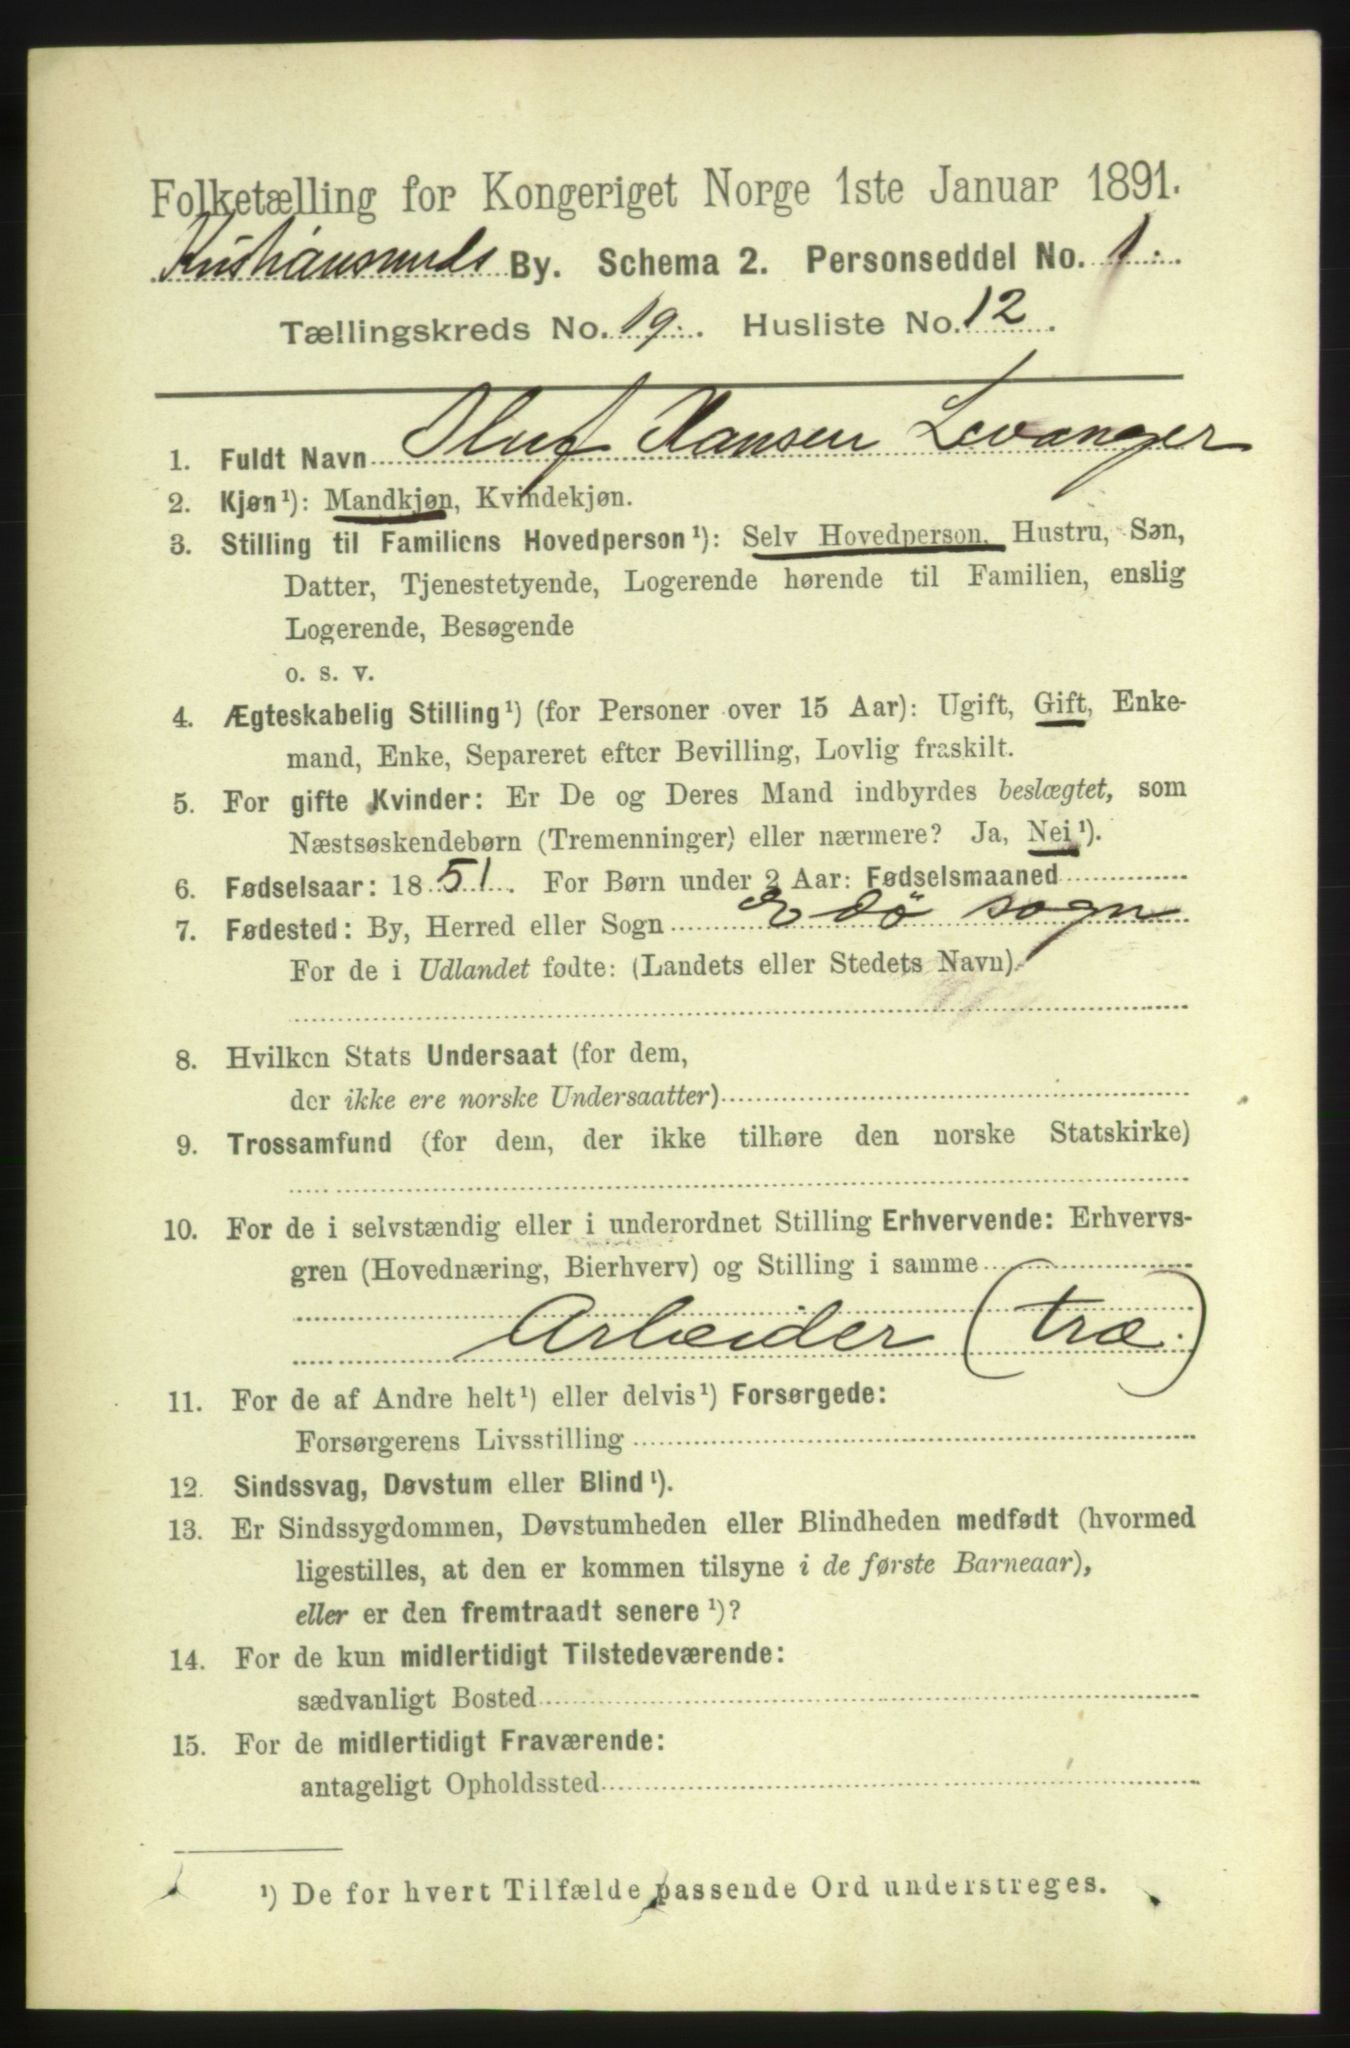 Folketælling for Kongeriget Norge 1ste Januar 1891.
Kristiansunds By. Schema 2. Personseddel No. 1.
Tællingskreds No. 19. Husliste No. 12.
1. Fuldt Navn Oluf Hansen Levanger
2. Kjøn¹): Mandkjøn, Kvindekjøn.
3. Stilling til Familiens Hovedperson¹): Selv Hovedperson, Hustru, Søn,
Datter, Tjenestetyende, Logerende hørende til Familien, enslig
Logerende, Besøgende
o. s. v.
4. Ægteskabelig Stilling¹) (for Personer over 15 Aar): Ugift, Gift, Enke-
mand, Enke, Separeret efter Bevilling, Lovlig fraskilt.
5. For gifte Kvinder: Er De og Deres Mand indbyrdes beslægtet, som
Næstsøskendebørn (Tremenninger) eller nærmere? Ja, Nei¹).
6. Fødselsaar: 1851. For Børn under 2 Aar: Fødselsmaaned
7. Fødested: By, Herred eller Sogn Edö sogn
For de i Udlandet fødte: (Landets eller Stedets Navn)
8. Hvilken Stats Undersaat (for dem,
der ikke ere norske Undersaatter)
9. Trossamfund (for dem, der ikke tilhøre den norske Statskirke)
10. For de i selvstændig eller i underordnet Stilling Erhvervende: Erhvervs-
gren (Hovednæring, Bierhverv) og Stilling i samme
Arbeider (træ.)
11. For de af Andre helt¹) eller delvis¹) Forsørgede:
Forsørgerens Livsstilling
12. Sindssvag, Døvstum eller Blind¹).
13. Er Sindssygdommen, Døvstumheden eller Blindheden medfødt (hvormed
ligestilles, at den er kommen tilsyne i de første Barneaar),
eller er den fremtraadt senere¹)?
14. For de kun midlertidigt Tilstedeværende:
sædvanligt Bosted
15. For de midlertidigt Fraværende:
antageligt Opholdssted
¹) De for hvert Tilfælde passende Ord understreges.